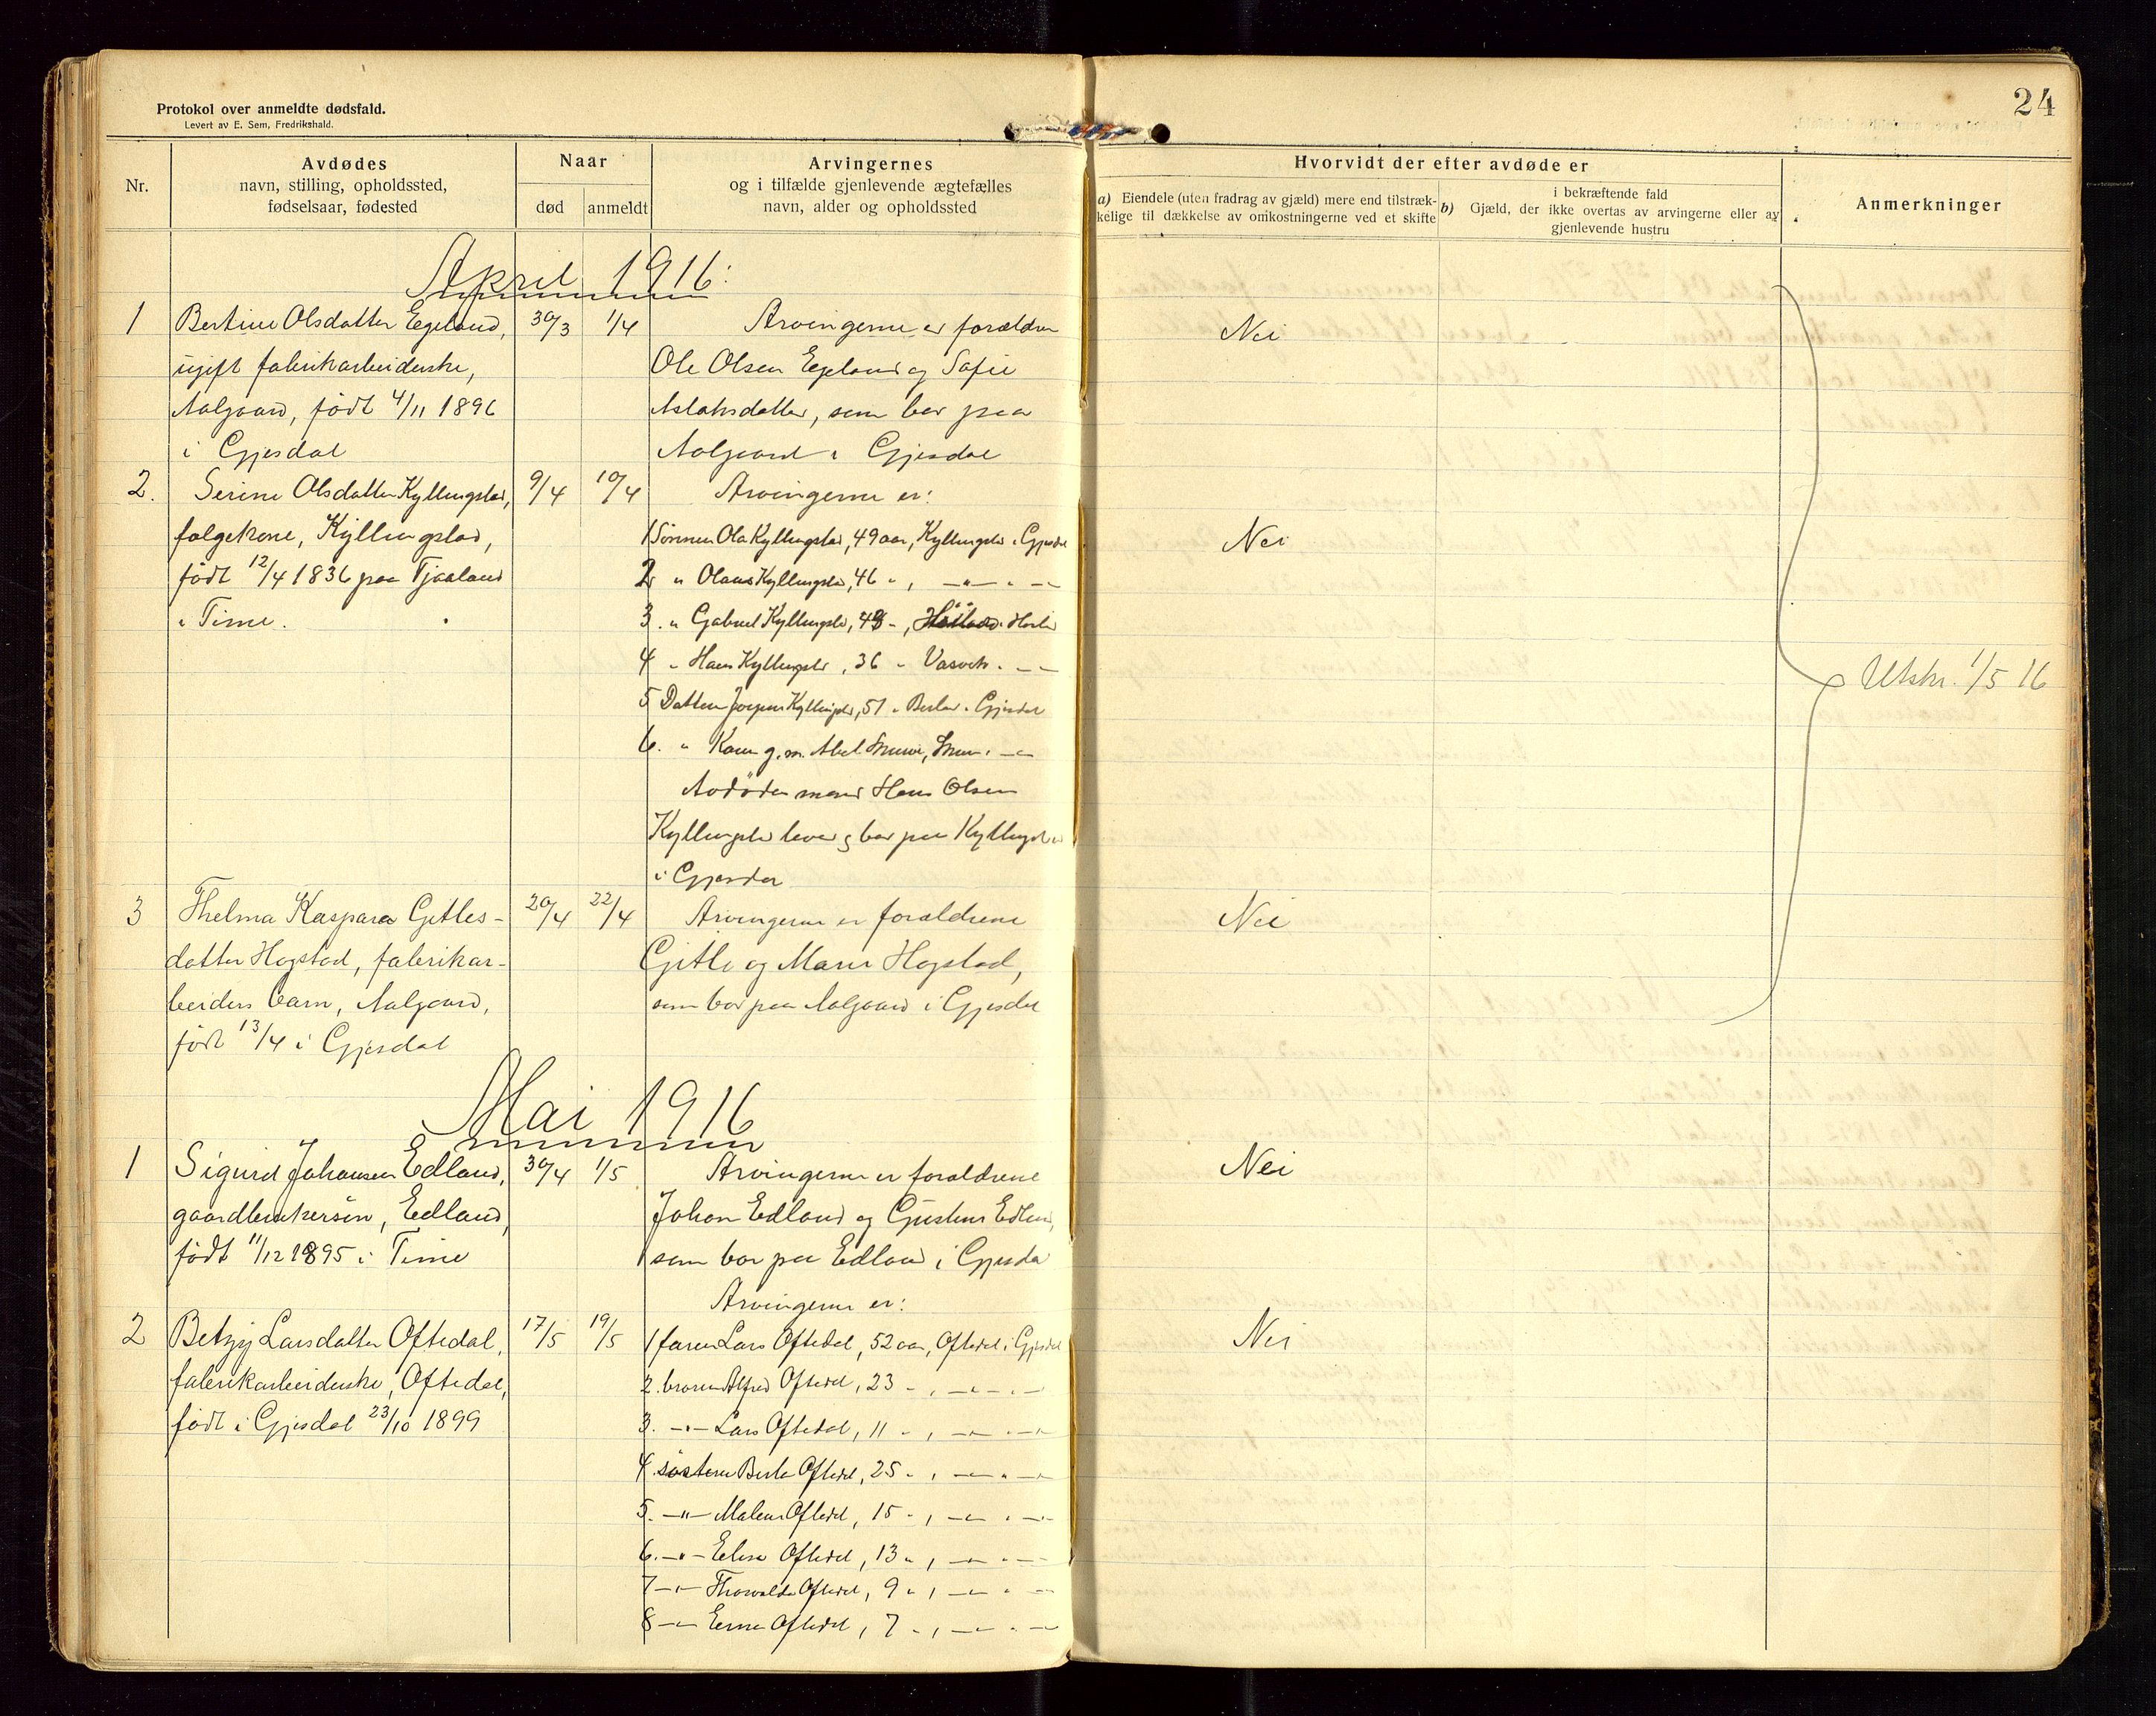 Protokol over anmeldte dødsfald.
Levert av E. Sem, Fredrikshald.
24
Nr.
Avdødes
navn, stilling, opholdssted,
fødselsaar, fødested
Naar
død
anmeldt
Arvingernes
og i tilfælde gjenlevende ægtefælles
navn, alder og opholdssted
Hvorvidt der efter avdøde er
a) Eiendele (uten fradrag av gjæld) mere end tilstræk-
kelige til dækkelse av omkostningerne ved et skifte
b) Gjæld, der i bekræftende fald
ikke overtas av arvingerne eller av
gjenlevende hustru
Anmerkninger
April 1916:
1 Bertine Olsdatter Egeland, 30/3 1/4
ugift fabrikarbeiderske,
Aalgaard, født 4/11 1896
i Gjesdal
Arvingerne er forældrene
Ole Olsen Egeland og Safie
Aslaksdatter, som bor paa
Aalgaard i Gjesdal
Nei
2. Serine Olsdatter Kyllingstad, 9/4 10/4
følgekone, Kyllingstad,
født 12/4 1836 paa Tjaaland
i Time.
Arvingerne er:
1 Sønnen Ola Kyllingstad, 49 aar, Kyllingstad i Gjesdal
2 " Olaus Kyllingstad, 46 " , —"— " —
3. " Gabriel Kyllingstad, 48 " ,
4 " Hans Kyllingstad, 36 "
5 Datteren Kyllingstad, 51 " Gjesdal
6. " Karen g. m. Abel
Avdødes mand Hans Olsen
Kyllingstad lever og bor paa Kyllingstad
i Gjesdal
Nei
Utskr. 1/5 16
3 Thelma Kaspara Gitles- 20/4 22/4
datter Hogstad, fabrikar-
beiders barn, Aalgaard,
født 13/4 i Gjesdal
Arvingerne er forældrene
Gitle og Maria Hogstad,
som bor paa Aalgaard i Gjesdal
Nei
Mai 1916
1 Sigurd Johansen Edland, 30/4 1/5
gaardbrukersøn, Edland,
født 11/12 1895 i Time
Arvingerne er forældrene
Johan Edland og Edland,
som bor paa Edland i Gjesdal
Nei
2 Betzy Larsdatter Oftedal, 17/5 19/5
fabrikarbeiderske, Oftedal,
født i Gjesdal 23/10 1899
Arvingerne er:
1 faren Lars Oftedal, 52 aar, Oftedal i Gjesdal
2. broren Alfred Oftedal, 23 " , —"— " —
3. —"— Lars Oftedal, 11 " , —"— " —"—
4. søsteren Berta Oftedal, 25 " , —"— " —"—
5. —"— Malene Oftedal, 15 " , —"— " —"—
6. —"— Oftedal, 13 " , —"— " —
7 —"— Thorvalda Oftedal, 9 " , —"— " —
8 —"— Erna Oftedal, 7 " , —"— " —
Nei